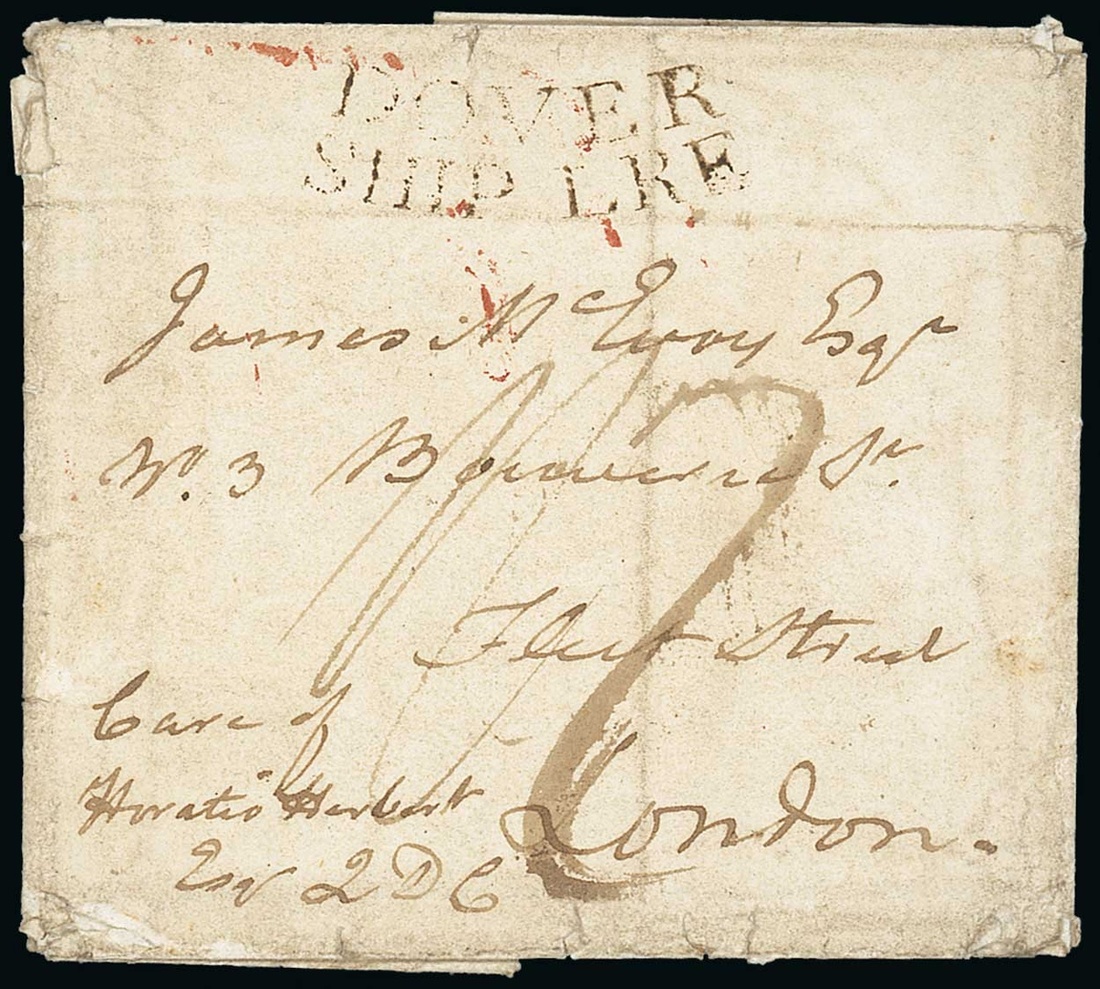 DOVER
SHIP LRE
James Mc Evoy Esqr
No. 3 Bouverie St.
Fleet Street
London.
Care of
Horatio Herbert
Esqr 2 D C